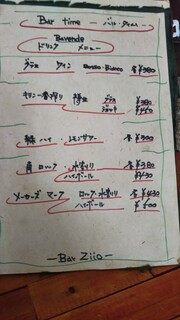 Bar time ー バータイム ー
Bevende
ドリンク メニュー
グラス ワイン Rosso・Bianco 各¥380
キリン一番搾り 樽生 グラス ¥380
緑ハイ・レモンサワー 各¥400
角 ロック・水割り 各¥380
ハイボール ¥430
メーカーズ マーク ロック・水割り 各¥450
ハイボール ¥500
ー Bar Ziio ー